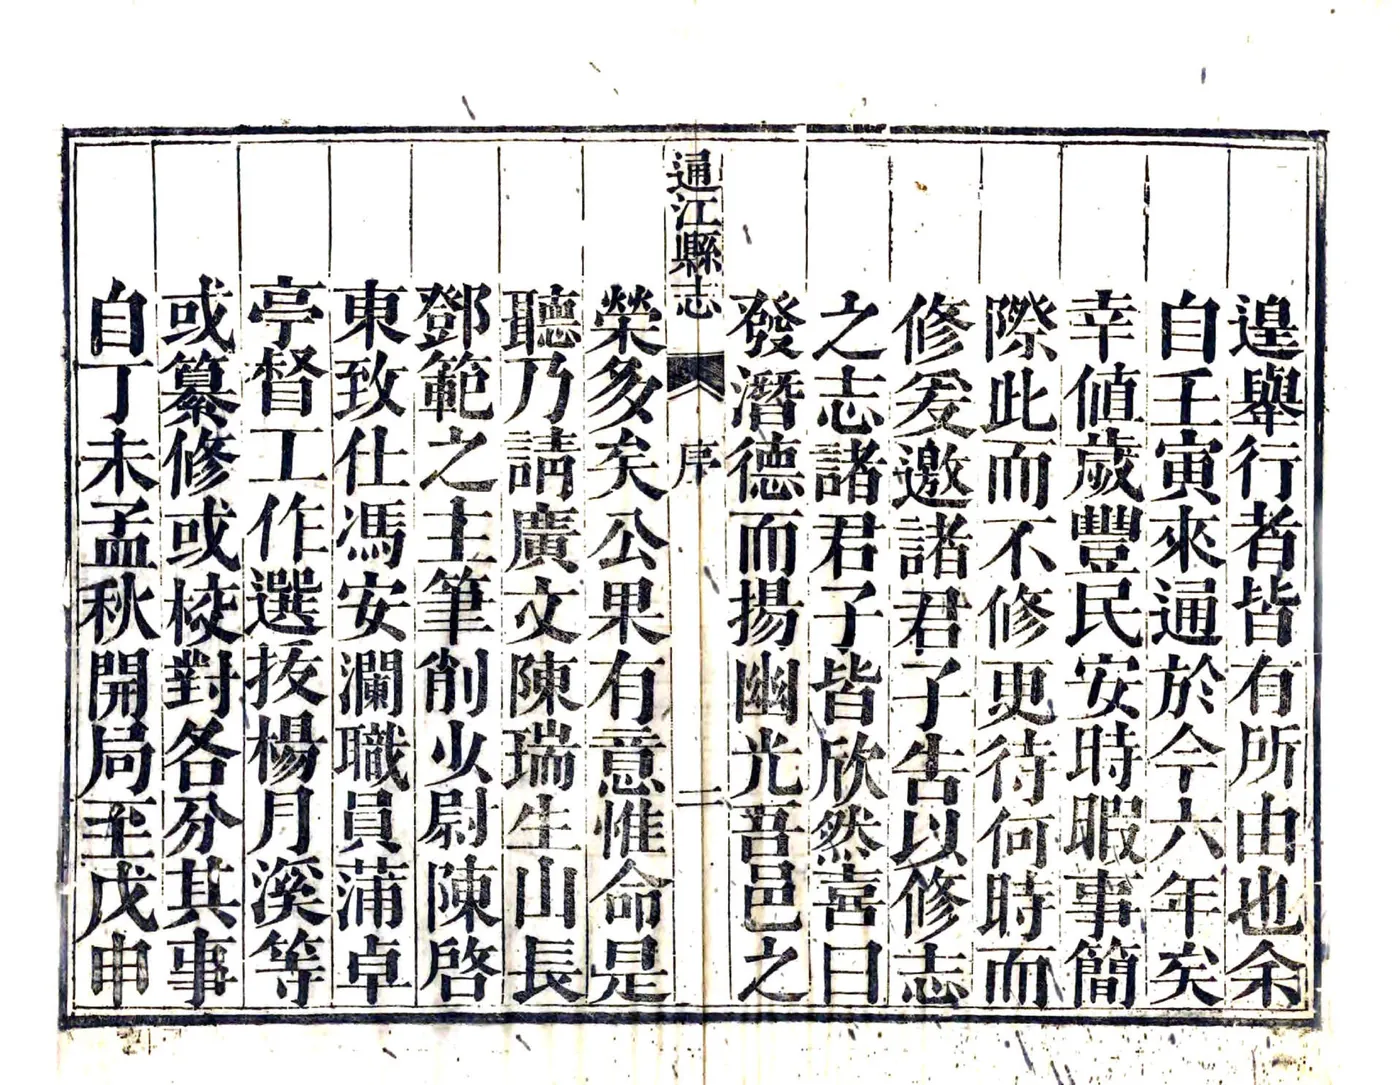 遑舉行者皆有所由也余
自壬寅來通於今六年矣
幸値歲豐民安時暇事簡
際此而不修更待何時而
修爰邀諸君子告以修志
之志諸君子皆欣然喜曰
發潛德而揚幽光吾邑之
通江縣志 序 二
榮多矣公果有意惟命是
聽乃請廣文陳瑞生山長
鄧範之主筆削少尉陳啓
東致仕馮安瀾職員蒲卓
亭督工作選拔楊月溪等
或纂修或校對各分其事
自丁未孟秋開局至戊申